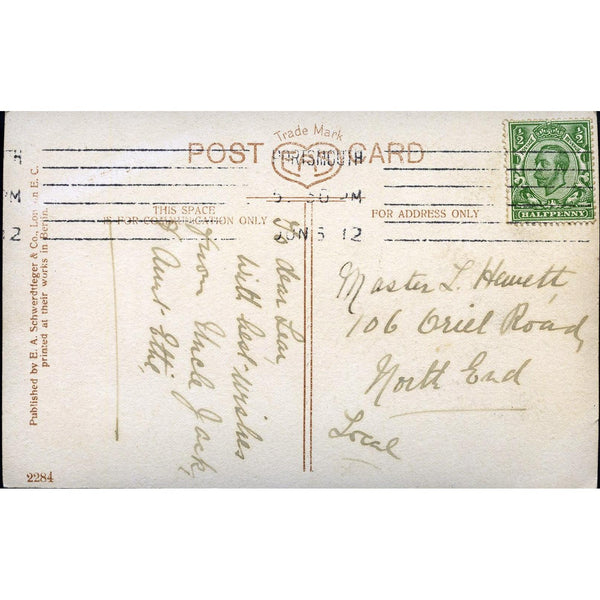 Trade Mark
POST CARD
PORTSMOUTH
5 30 PM
JUN 5 12
PM
12
½ ½
HALFPENNY
THIS SPACE
IS FOR COMMUNICATION ONLY
FOR ADDRESS ONLY
To dear Len,
with best wishes
from Uncle Jack,
& Aunt Ettie,
Master L. Hewett
106 Oriel Road,
North End
Local
Published by E. A. Schwerdtfeger & Co., London E. C.
printed at their works in Berlin.
2284